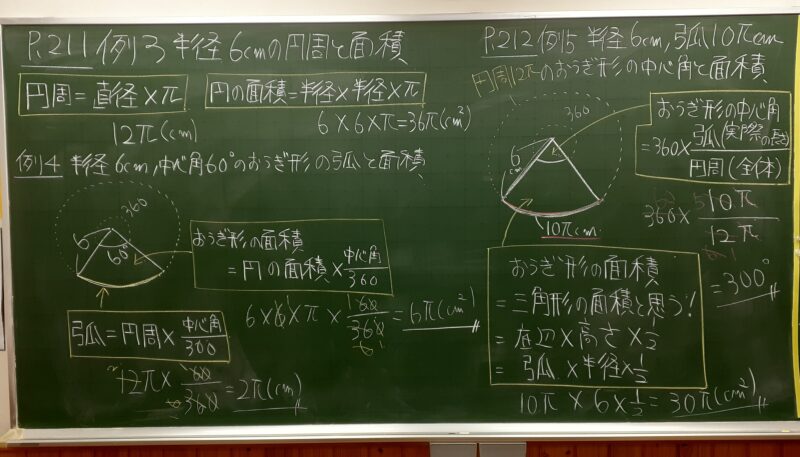 P.211 例3 半径6cmの円周と面積
円周=直径×π
円の面積=半径×半径×π
12π(cm)
6×6×π=36π(cm²)
例4 半径6cm,中心角60°のおうぎ形の弧と面積
360
6
60°
おうぎ形の面積
=円の面積×中心角/360
6×6×π×60/360=6π(cm²)
弧=円周×中心角/360
12π×60/360=2π(cm)
P.212 例5 半径6cm,弧10πcm
円周12πのおうぎ形の中心角と面積
360
6cm
10πcm
おうぎ形の中心角
=360×弧(実際の長さ)/円周(全体)
360×10π/12π
=300°
おうぎ形の面積
=三角形の面積と思う!
=底辺×高さ×1/2
=弧×半径×1/2
10π×6×1/2=30π(cm²)